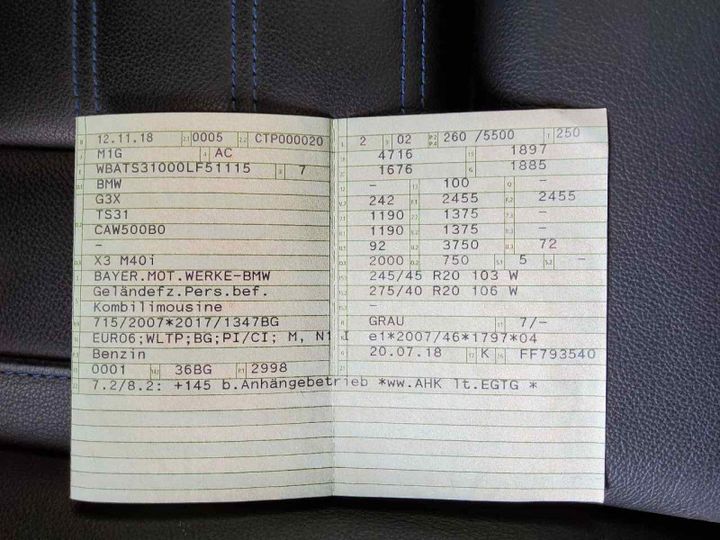 12.11.18 0005 CTP000020
M1G AC
WBATS31000LF51115 7
BMW
G3X
TS31
CAW500B0
-
X3 M40i
BAYER.MOT.WERKE-BMW
Geländefz.Pers.bef.
Kombilimousine
715/2007*2017/1347BG
EURO6;WLTP;BG;PI/CI; M, N1 I
Benzin
0001 36BG 2998
7.2/8.2: +145 b.Anhängebetrieb *ww.AHK lt.EGTG *
2 02 260 /5500 250
4716 1897
1676 1885
- 100 -
242 2455 2455
1190 1375 -
1190 1375 -
92 3750 72
2000 750 5 -
245/45 R20 103 W
275/40 R20 106 W
-
GRAU 7/-
e1*2007/46*1797*04
20.07.18 K FF793540